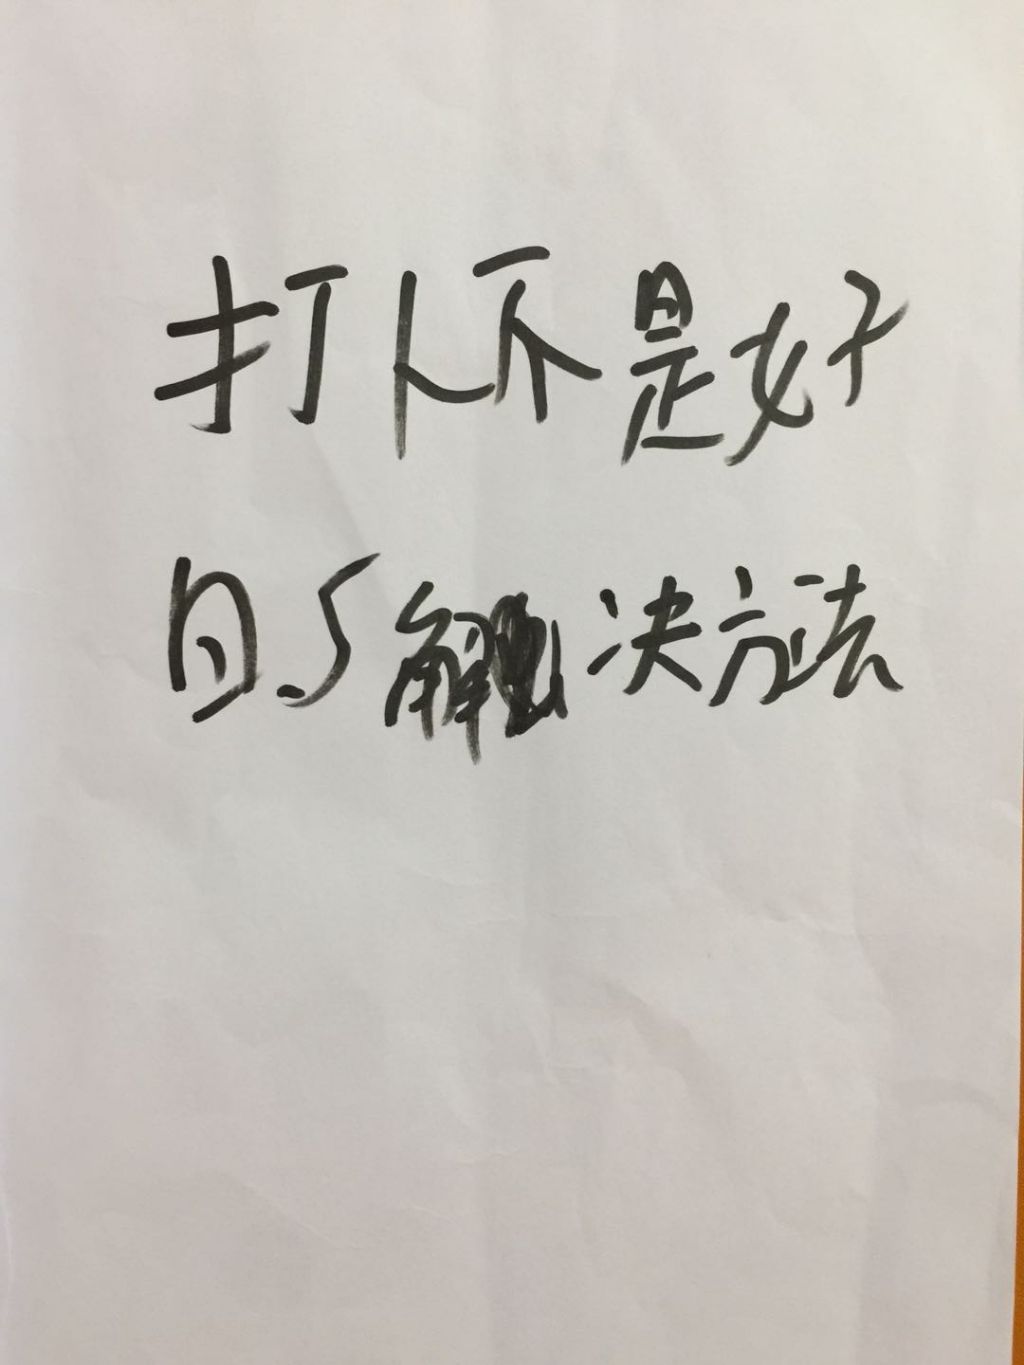 打人不是好
的解决方法